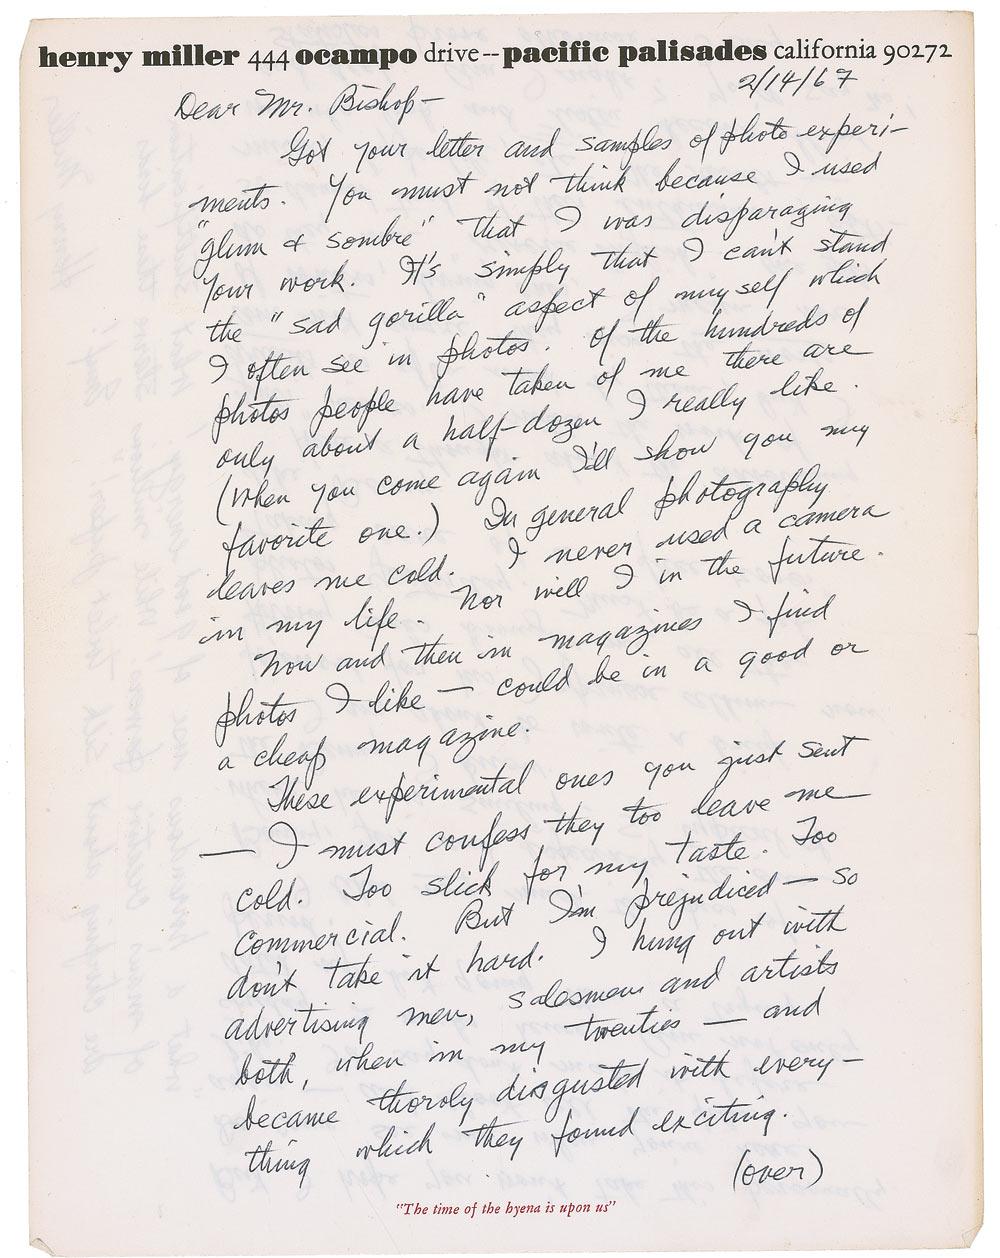 henry miller 444 ocampo drive--pacific palisades california 90272
2/14/67
Dear Mr. Bishop—
Got your letter and samples of photo experi-
ments. You must not think because I used
"glum & sombre" that I was disparaging
your work. It's simply that I can't stand
the "sad gorilla" aspect of myself which
I often see in photos. Of the hundreds of
photos people have taken of me there are
only about a half-dozen I really like.
(When you come again I'll show you my
favorite one.) In general photography
leaves me cold. I never used a camera
in my life. Nor will I in the future.
Now and then in magazines I find
photos I like — could be in a good or
a cheap magazine.
These experimental ones you just sent
— I must confess they too leave me
cold. Too slick for my taste. Too
commercial. But I'm prejudiced — so
don't take it hard. I hung out with
advertising men, salesmen and artists
both, when in my twenties — and
became thoroly disgusted with every-
thing which they found exciting.
(over)
"The time of the hyena is upon us"